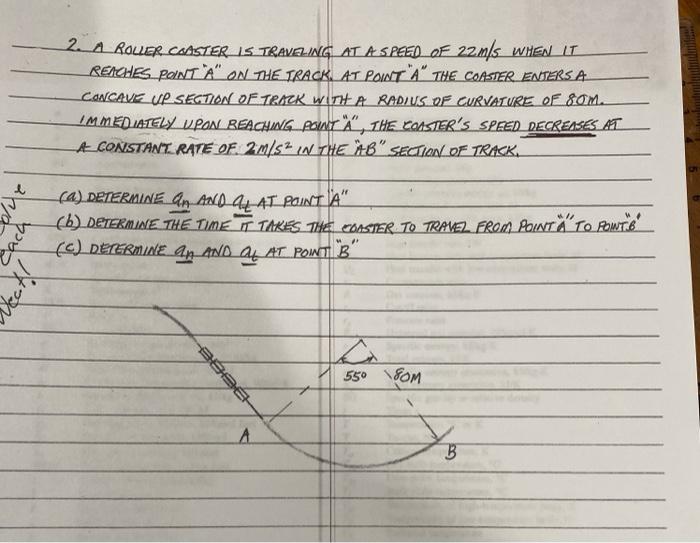 2. A ROLLER COASTER IS TRAVELING AT A SPEED OF 22M/S WHEN IT
REACHES POINT "A" ON THE TRACK. AT POINT "A" THE COASTER ENTERS A
CONCAVE UP SECTION OF TRACK WITH A RADIUS OF CURVATURE OF 80M.
IMMEDIATELY UPON REACHING POINT "A", THE COASTER'S SPEED DECREASES AT
A CONSTANT RATE OF 2M/S² IN THE "AB" SECTION OF TRACK.
(a) DETERMINE an AND at AT POINT "A"
(b) DETERMINE THE TIME IT TAKES THE COASTER TO TRAVEL FROM POINT "A" TO POINT "B"
(c) DETERMINE an AND at AT POINT "B"
Solve
Each
Neat!
55°
80M
A
B